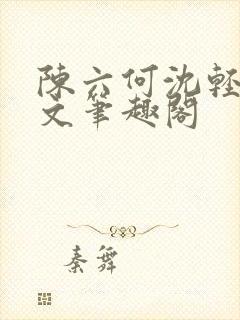 陳六何沈輕
文筆趣閣
秦舞